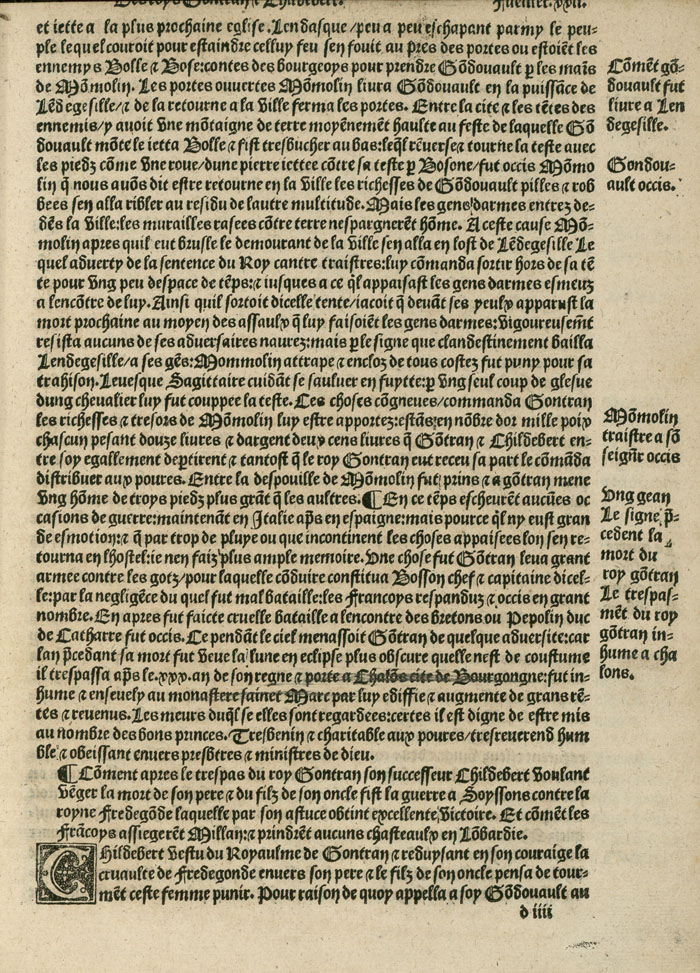 et iette a la plus prochaine eglise. Lendasque/peu a peu eschapant parmy le peu-
ple lequel couroit pour estaindre celluy feu sen fouit au pres des portes ou estoiẽt les
ennemys Bolle ⁊ Bose:contes des bourgeoys pour prendre Gõdouault p̱ les mais̃
de Mõmolin. Les portes ouvertes Mõmolin livra Gõdouault en la puissãce de
Lẽdegesille/⁊ de la retourne a la ville ferma les portes. Entre la cite ⁊ les tẽtes des
ennemis/y avoit vne mõtaigne de terre moyẽnemẽt haulte au feste de laquelle Gõ
douault mõte le ietta Bolle ⁊ fist tresbucher au bas:leq̃l rẽuerse ⁊ tourne la teste avec
les piedz cõme vne roue/dune pierre iettee cõtre sa teste p̱ Bosone/fut occis Mõmo
lin q̃ nous auõs dit estre retourne en la ville les richesses de Gõdouault pilles ⁊ rob
bees sen alla ribler au residu de lautre multitude. Mais les gens darmes entrez de-
dẽs la ville:les murailles rasees cõtre terre nespargnerẽt hõme. A ceste cause Mõ-
molin apres quil eut brusle le demourant de la ville sen alla en lost de Lẽdegesille Le
quel aduerty de la sentence du Roy cantre traistres:luy cõmanda sortir hors de sa tẽ
te pour vng peu despace de tẽps:⁊ iusques a ce q̃l appaisast les gens darmes esmeuz
a lencõtre de luy. Ainsi quil sortoit dicelle tente/iacoit q̃ deuãt ses yeulx apparust la
mort prochaine au moyen des assaulx q̃ luy faisoiẽt les gens darmes:vigoureusemẽt
resista aucuns de ses aduersaires naurez:mais p̱ le signe que clandestinement bailla
Lendegesille/a ses gẽs:Mommolin attrape ⁊ encloz de tous costez fut puny pour sa
trahison. Leuesque Sagittaire cuidãt se sauluer en fuytte:p̱ vng seul coup de glesue
dung cheualier luy fut couppee la teste. Ces choses cõgneues/commanda Gontran
les richesses ⁊ tresors de Mõmolin luy estre apportez:estãs:en nõbre dor mille poix
chascun pesant douze livres ⁊ dargent deux cens livres q̃ Gõtran ⁊ Childebert en-
tre soy egallement dep̱tirent ⁊ tantost q̃ le roy Gontran eut receu sa part le cõmãda
distribuer aux poures. Entre la despouille de Mõmolin fut prins ⁊ a gõtran mene
vng hõme de troys piedz plus grãt q̃ les aultres. ¶ En ce tẽps escheurẽt aucũes oc
casions de guerre:maintenãt en Italie ap̃s en espaigne:mais pource q̃l ny eust gran
de esmotion:⁊ q̃ par trop de pluye ou que incontinent les choses appaisees lon sen re-
tourna en lhostel:ie nen faiz plus ample memoire. Vne chose fut Gõtran leua grant
armee contre les gotz/pour laquelle cõduire constitua Bosson chef ⁊ capitaine dicel-
le:par la negligẽce du quel fut mal bataille:les Francoys respanduz ⁊ occis en grant
nombre. En apres fut faicte cruelle bataille a lencontre des bretons ou Pepolin duc
de Catharre fut occis. Ce pendãt le ciel menassoit Gõtran de quelque aduersite:car
lan p̃cedant sa mort fut veue la lune en eclipse plus obscure quelle nest de coustume
il trespassa ap̃s le.xxx.an de son regne ⁊ porte a Chalõs cite de Bourgongne:fut in-
hume ⁊ enseuely au monastere sainct Marc par luy ediffie ⁊ augmente de grans rẽ-
tes ⁊ revenus. Les meurs duq̃l se elles sont regardees:certes il est digne de estre mis
au nombre des bons princes. Tresbenin ⁊ charitable aux poures/tresreuerend hum
ble ⁊ obeissant enuers presbtres ⁊ ministres de dieu.
¶ Cõment apres le trespas du roy Gontran son successeur Childebert voulant
vẽger la mort de son pere ⁊ du filz de son oncle fist la guerre a Soyssons contre la
royne Fredegõde laquelle par son astuce obtint excellente victoire. Et cõmẽt les
Frãcoys assiegerẽt Millan:⁊ prindrẽt aucuns chasteaulx en Lõbardie.
CHildebert vestu du Royaulme de Gontran ⁊ reduysant en son couraige la
cruaulte de Fredegonde enuers son pere ⁊ le filz de son oncle pensa de tour-
mẽt ceste femme punir. Pour raison de quoy appella a soy Gõdouault au
d iiii
Cõmẽt gõ-
douault fut
liure a Len
degesille.
Gondou-
ault occis.
Mõmolin
traistre a sõ
seignr̃ occis
vng gean
Le signe p̃-
cedent la
mort du
roy gõtran
Le trespas-
mẽt du roy
gõtran in-
hume a cha
lons.